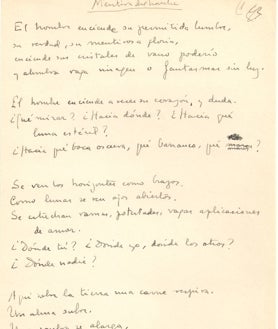 Mentiroso hombre
El hombre enciende su permitida lumbre,
su verdad, su mentirosa gloria,
enciende sus cristales de vano poderío
y alumbra vaga imagen o fantasmas sin luz.
El hombre enciende a veces su corazón, y duda.
¿Qué mirar? ¿Hacia dónde? ¿Hacia qué
luna estéril?
¿Hacia qué boca oscura, qué barranca, qué
Se ven los horizontes como brazos.
Como lunas se ven ojos abiertos.
Se escuchan ramas, potestades, vagas aplicaciones
de amor.
¿Dónde tú? ¿Dónde yo, dónde los otros?
¿Dónde nadie?
Aquí sobre la tierra una carne respira.
Un alma sube.
se alarga,